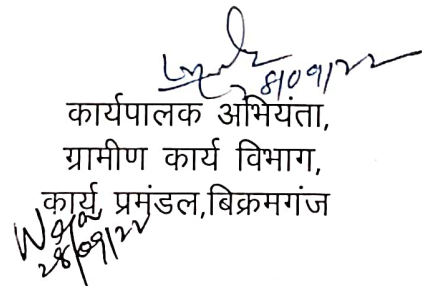 8/09/22
कार्यपालक अभियंता,
ग्रामीण कार्य विभाग,
कार्य प्रमंडल,बिक्रमगंज
28/09/22